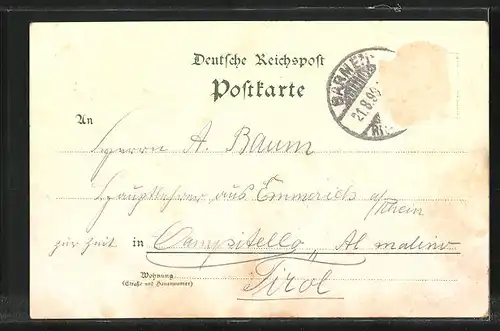 Deutsche Reichspost
Postkarte
BARMEN
21.8.99
An
Herrn A. Baum
Hauptlehrer aus Emmerich a/Rhein
zur Zeit in Campitello „Al molino
Wohnung
(Straße und Hausnummer)
Tirol